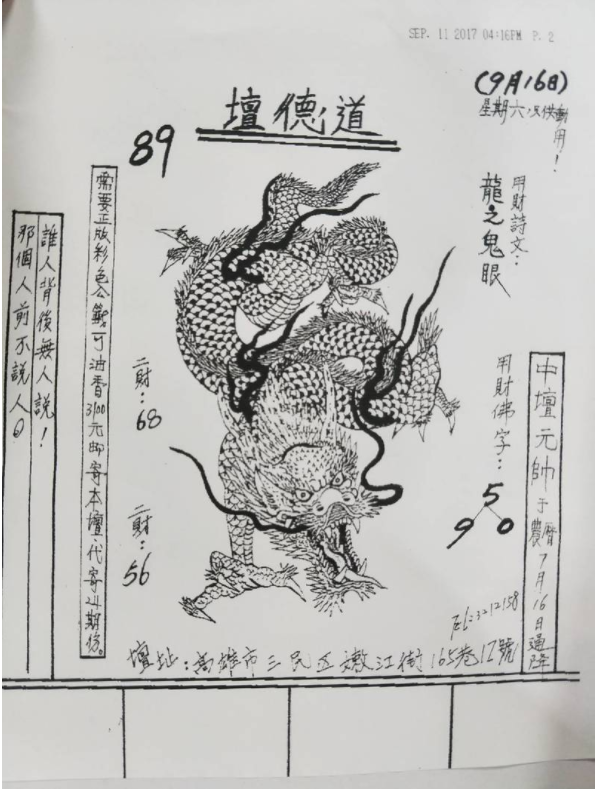 SEP. 11 2017 04:16PM P. 2
(9月16日)
星期六只供動用！
道德壇
89
用財詩文：
龍之鬼眼
用財佛字：
5
9 0
中壇元帥于農曆7月16日通降
需要正版彩色公籤可油香3100元郵寄本壇代寄24期份。
誰人背後無人說！
那個人前不說人。
二財：68
二財：56
TEL:3212158
壇址：高雄市三民區嫩江街165巷17號